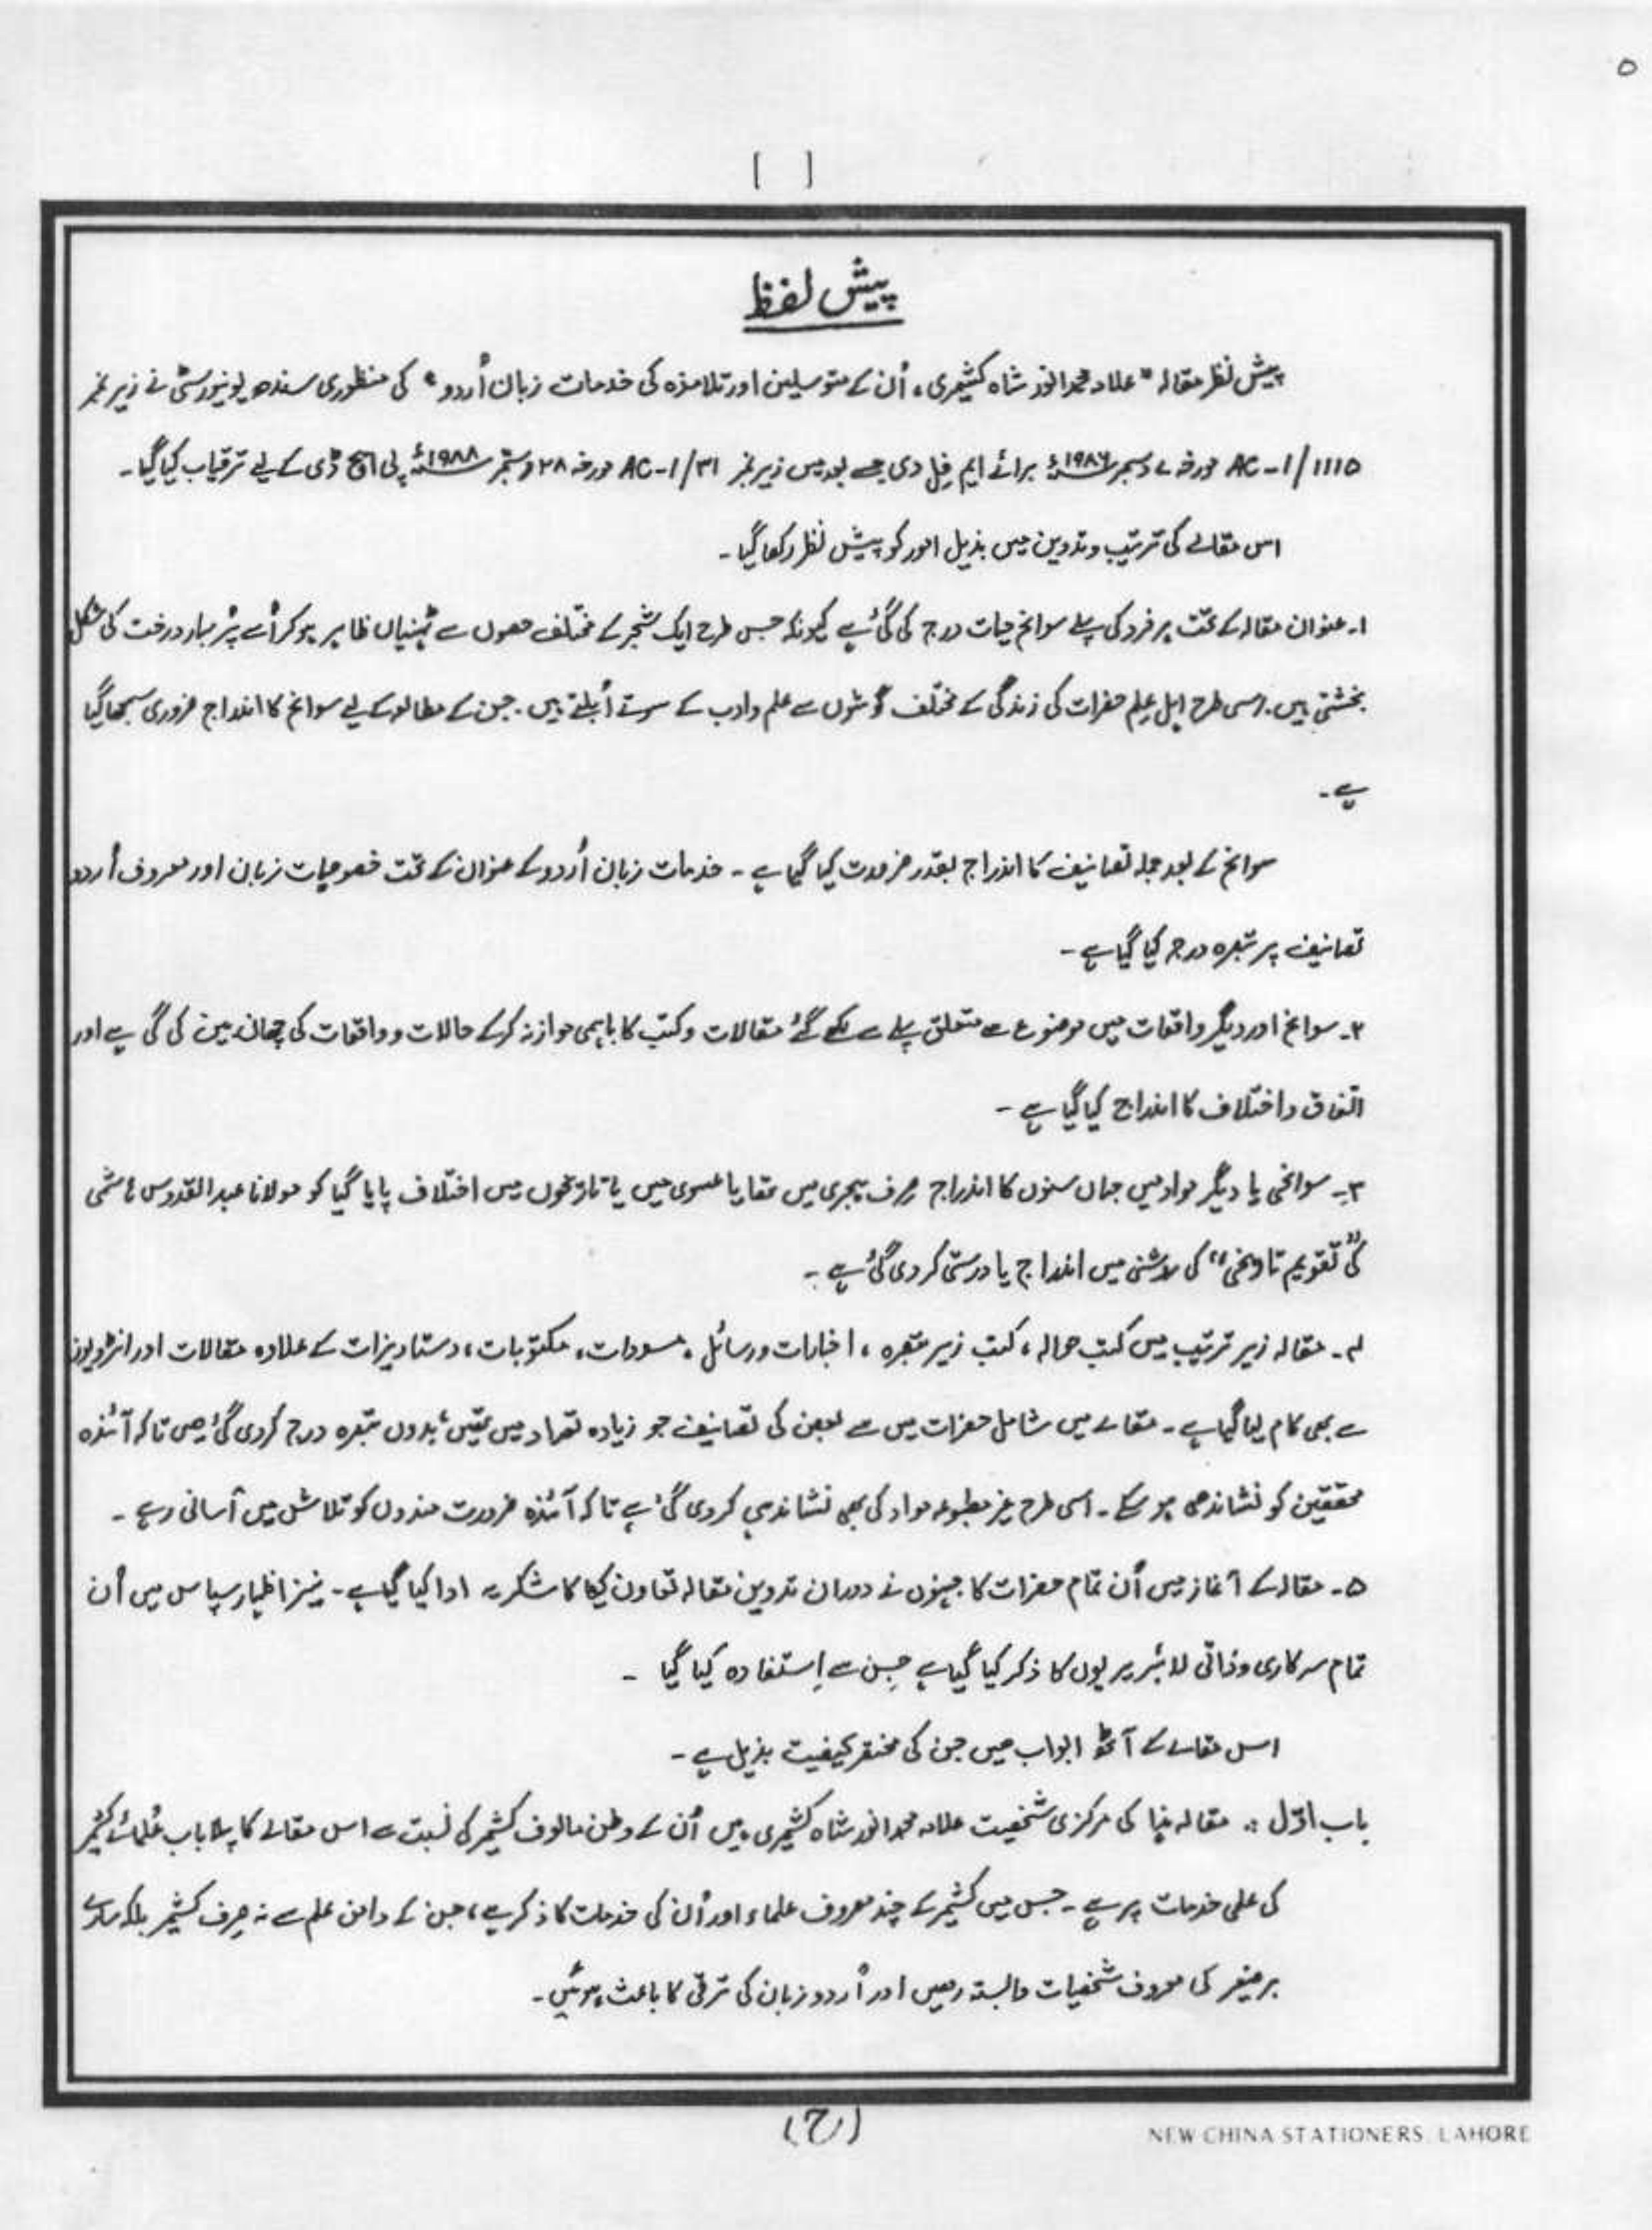 ۵
[ ]
پیش لفظ
پیش نظر مقالہ "علامہ محمد انور شاہ کشمیری، اُن کے متوسلین اور تلامذہ کی خدمات زبان اُردو" کی منظوری سندھ یونیورسٹی نے زیر نمبر
AC-1/1115 مورخہ ۷ دسمبر ۱۹۸۶ء برائے ایم فِل دی جسے بعد میں زیر نمبر AC-1/31 مورخہ ۲۸ ستمبر ۱۹۸۸ء پی ایچ ڈی کے لیے ترقیاب کیا گیا۔
اس مقالے کی ترتیب و تدوین میں بذیل امور کو پیش نظر رکھا گیا۔
۱۔ عنوان مقالہ کے تحت ہر فرد کی پہلے سوانح حیات درج کی گئی ہے کیونکہ جس طرح ایک شجر کے مختلف حصوں سے ٹہنیاں ظاہر ہو کر اُسے پُر بہار درخت کی شکل
بخشتی ہیں۔ اسی طرح اہل عِلم حضرات کی زندگی کے مختلف گوشوں سے علم و ادب کے سوتے اُبلتے ہیں۔ جن کے مطالعہ کے لیے سوانح کا اندراج ضروری سمجھا گیا
ہے۔
سوانح کے بعد جملہ تصانیف کا اندراج بقدر ضرورت کیا گیا ہے۔ خدمات زبان اُردو کے عنوان کے تحت خصوصیات زبان اور معروف اُردو
تصانیف پر تبصرہ درج کیا گیا ہے۔
۲۔ سوانح اور دیگر واقعات میں موضوع سے متعلق پہلے سے لکھے گئے مقالات و کتب کا باہمی موازنہ کر کے حالات و واقعات کی چھان بین کی گی ہے اور
اتفاق و اختلاف کا اندراج کیا گیا ہے۔
۳۔ سوانحی یا دیگر مواد میں جہاں سنوں کا اندراج صِرف ہجری میں تھا یا عیسوی میں یا تاریخوں میں اختلاف پایا گیا کو مولانا عبدالقدوس ہاشمی
کی "تقویم تاریخی" کی روشنی میں اندراج یا درستی کر دی گئی ہے۔
۴۔ مقالہ زیر ترتیب میں کتب حوالہ، کتب زیر تبصرہ، اخبارات و رسائل، مسودات، مکتوبات، دستاویزات کے علاوہ مقالات اور انٹرویوز
سے بھی کام لیا گیا ہے۔ مقالے میں شامل حضرات میں سے بعض کی تصانیف جو زیادہ تعداد میں تھیں، بدوں تبصرہ درج کردی گئی ہیں تاکہ آئندہ
محققین کو نشاندھی ہو سکے۔ اسی طرح غیر مطبوعہ مواد کی بھی نشاندہی کر دی گئی ہے تا کہ آئندہ ضرورت مندوں کو تلاش میں آسانی رہے۔
۵۔ مقالہ کے آغاز میں اُن تمام حضرات کا جنہوں نے دوران تدوین مقالہ تعاون کیا کا شکریہ ادا کیا گیا ہے۔ نیز اظہار سپاس میں اُن
تمام سرکاری و ذاتی لائبریریوں کا ذکر کیا گیا ہے جِن سے اِستفادہ کیا گیا۔
اس مقالے کے آٹھ ابواب ہیں جن کی مختصر کیفیت بذیل ہے۔
باب اوّل :۔ مقالہ ہٰذا کی مرکزی شخصیت علامہ محمد انور شاہ کشمیری ہیں اُن کے وطن مالوف کشمیر کی نسبت سے اس مقالے کا پہلا باب عُلمائے کشمیر
کی علمی خدمات پر ہے۔ جس میں کشمیر کے چند معروف علماء اور اُن کی خدمات کا ذکر ہے، جن کے دامن علم سے نہ صِرف کشمیر بلکہ سارے
برصغیر کی معروف شخصیات وابستہ رہیں اور اُردو زبان کی ترقی کا باعث ہوئیں۔
(ح)
NEW CHINA STATIONERS, LAHORE